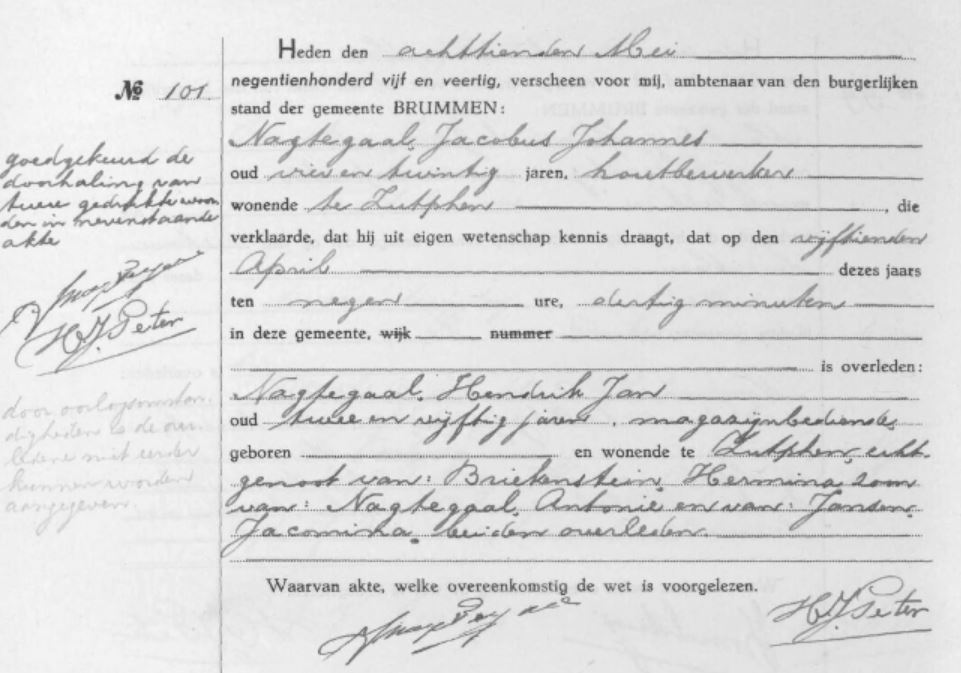 Heden den achttienden Mei
negentienhonderd vijf en veertig, verscheen voor mij, ambtenaar van den burgerlijken
stand der gemeente BRUMMEN:
Nagtegaal, Jacobus Johannes
oud vier en twintig jaren, houtbewerker
wonende te Zutphen, die
verklaarde, dat hij uit eigen wetenschap kennis draagt, dat op den vijftienden
April dezes jaars
ten negen ure, dertig minuten
in deze gemeente, wijk nummer
is overleden:
Nagtegaal, Hendrik Jan
oud twee en vijftig jaren, magazijnbediende,
geboren en wonende te Zutphen, echt-
genoot van: Briekenstein, Hermina zoon
van: Nagtegaal, Antonie en van: Jansen,
Jacomina, beiden overleden.
Waarvan akte, welke overeenkomstig de wet is voorgelezen.
H.J. Peter
№ 101
goedgekeurd de
doorhaling van
twee gedrukte woor-
den in nevenstaande
akte
H.J. Peter
door oorlogsomstan-
digheden is de over-
ledene niet eerder
kunnen worden
aangegeven.